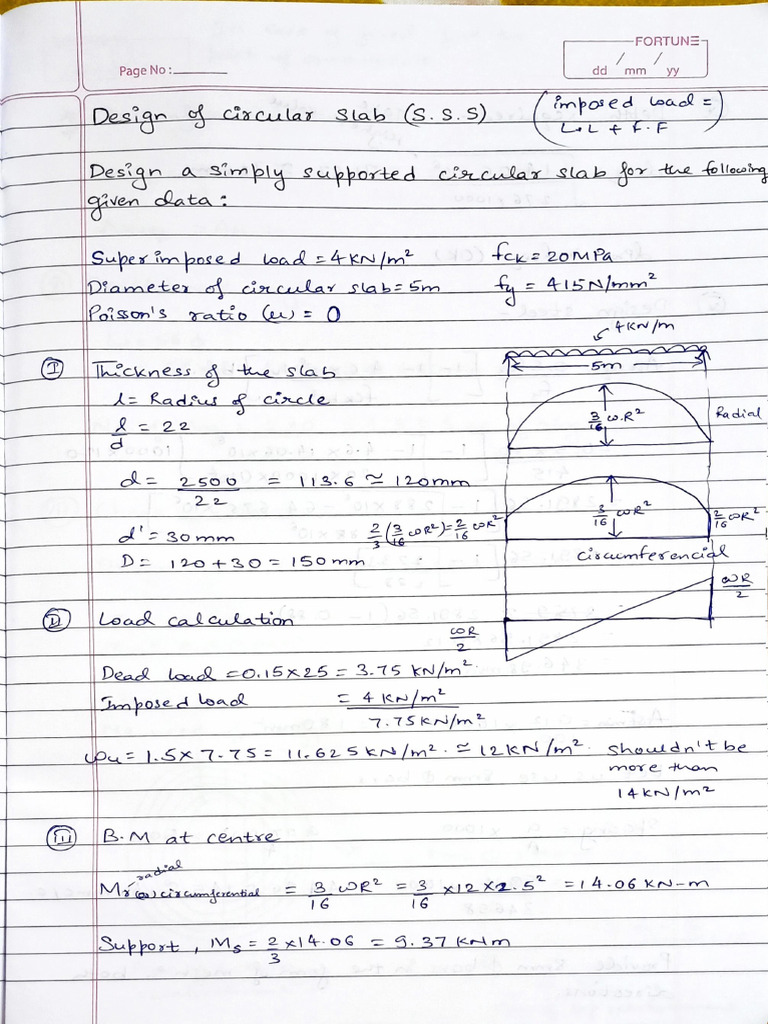 FORTUNE
Page No :
dd / mm / yy
Design of circular slab (S.S.S) (imposed load =
L.L + F.F)
Design a simply supported circular slab for the following
given data :
Superimposed load = 4 KN/m² fck = 20MPa
Diameter of circular slab = 5m fy = 415N/mm²
Poisson's ratio (u) = 0
4KN/m
5m
I Thickness of the slab
l = Radius of circle
l/d = 22
3/16 ω.R² Radial
d = 2500/22 = 113.6 ≃ 120mm
d' = 30mm 2/3 (3/16 ωR²) = 2/16 ωR² 3/16 ωR² 2/16 ωR²
D = 120 + 30 = 150mm circumferencial
ωR/2
II Load calculation
ωR/2
Dead load = 0.15 × 25 = 3.75 KN/m²
Imposed load = 4 KN/m²
7.75 KN/m²
ωu = 1.5 × 7.75 = 11.625 KN/m² ≃ 12 KN/m² shouldn't be
more than
14 KN/m²
III B.M at centre
radial
Mr (or) circumferential = 3/16 ωR² = 3/16 × 12 × 2.5² = 14.06 KN-m
Support , Ms = 2/3 × 14.06 = 9.37 KNm